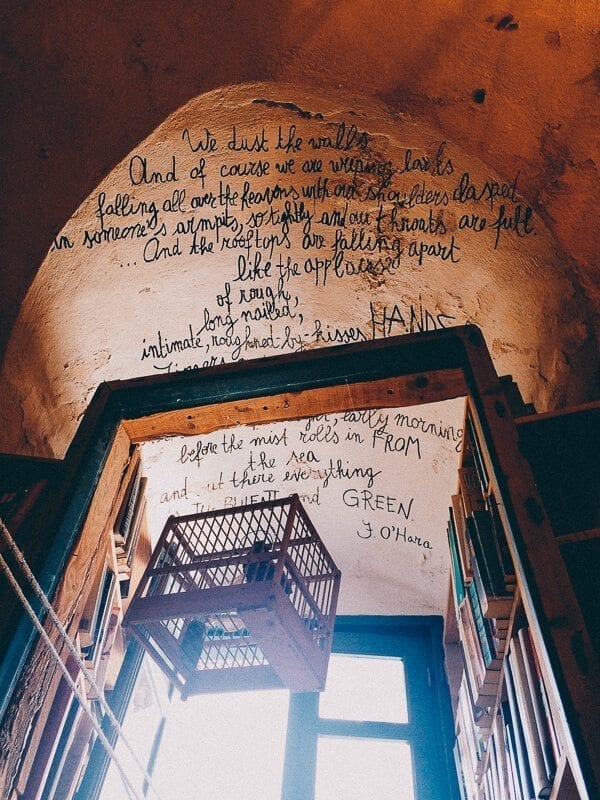 We dust the walls
And of course we are weeping larks
falling all over the heavens with our shoulders clasped
in someone's armpits, so tightly and our throats are full.
... And the rooftops are falling apart
like the applause
of rough,
long nailed,
intimate, roughened-by-kisses HANDS
Fingers
early morning
before the mist rolls in FROM
the sea
and out there everything
and GREEN.
F. O'Hara